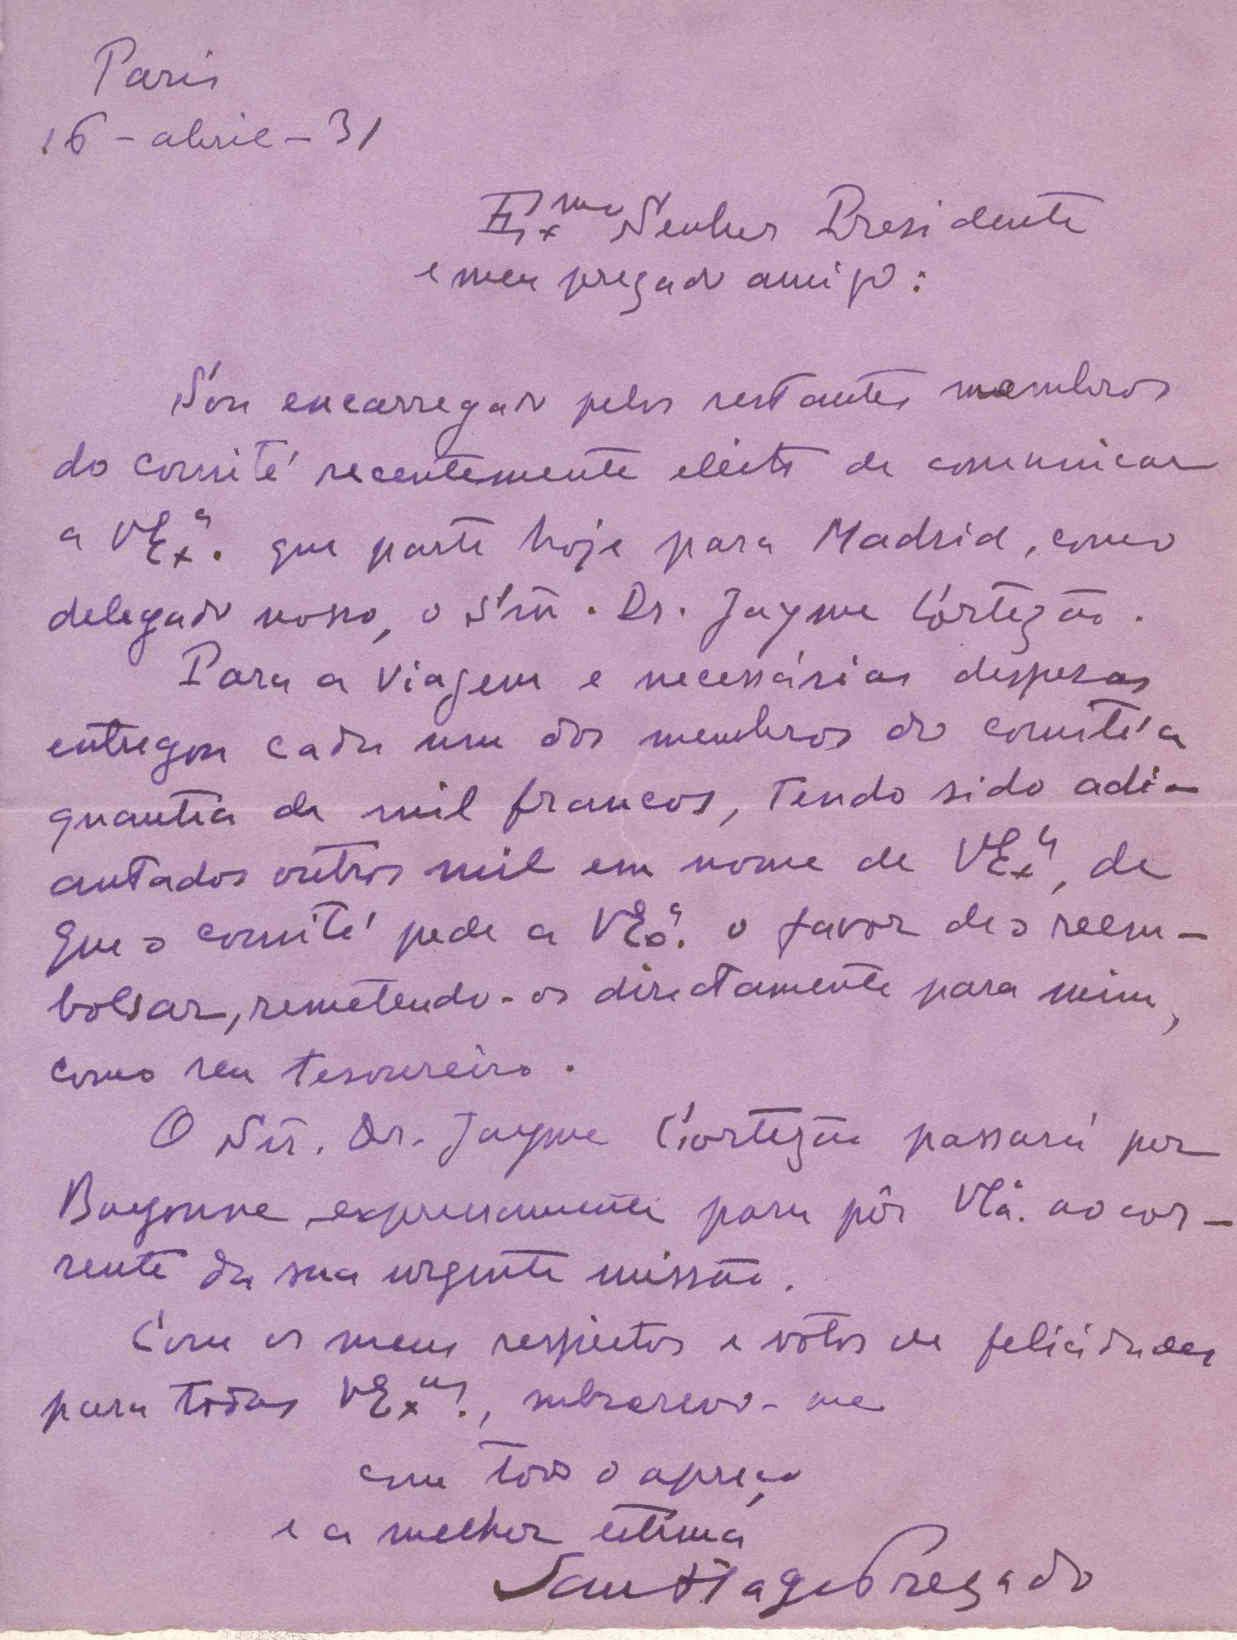 Paris
16 - abril - 31
Exmo Senhor Presidente
e meu prezado amigo:
Sou encarregado pelos restantes membros
do comité recentemente eleito de comunicar
a VExª. que parte hoje para Madrid, como
delegado nosso, o Snr. Dr. Jayme Cortezão.
Para a viagem e necessárias despezas
entregou cada um dos membros do comité a
quantia de mil francos, tendo sido adi-
antados outros mil em nome de VExª, de
que o comité pede a VExª. o favor de o reem-
bolsar, remetendo-os directamente para mim,
como seu tesoureiro.
O Snr. Dr. Jayme Cortezão passará por
Bayonne expressamente para pôr VExª. ao cor-
rente da sua urgente missão.
Com os meus respeitos e votos de felicidades
para todas VExas., subscrevo-me
com todo o apreço
e a melhor estima
Santiago Prezado